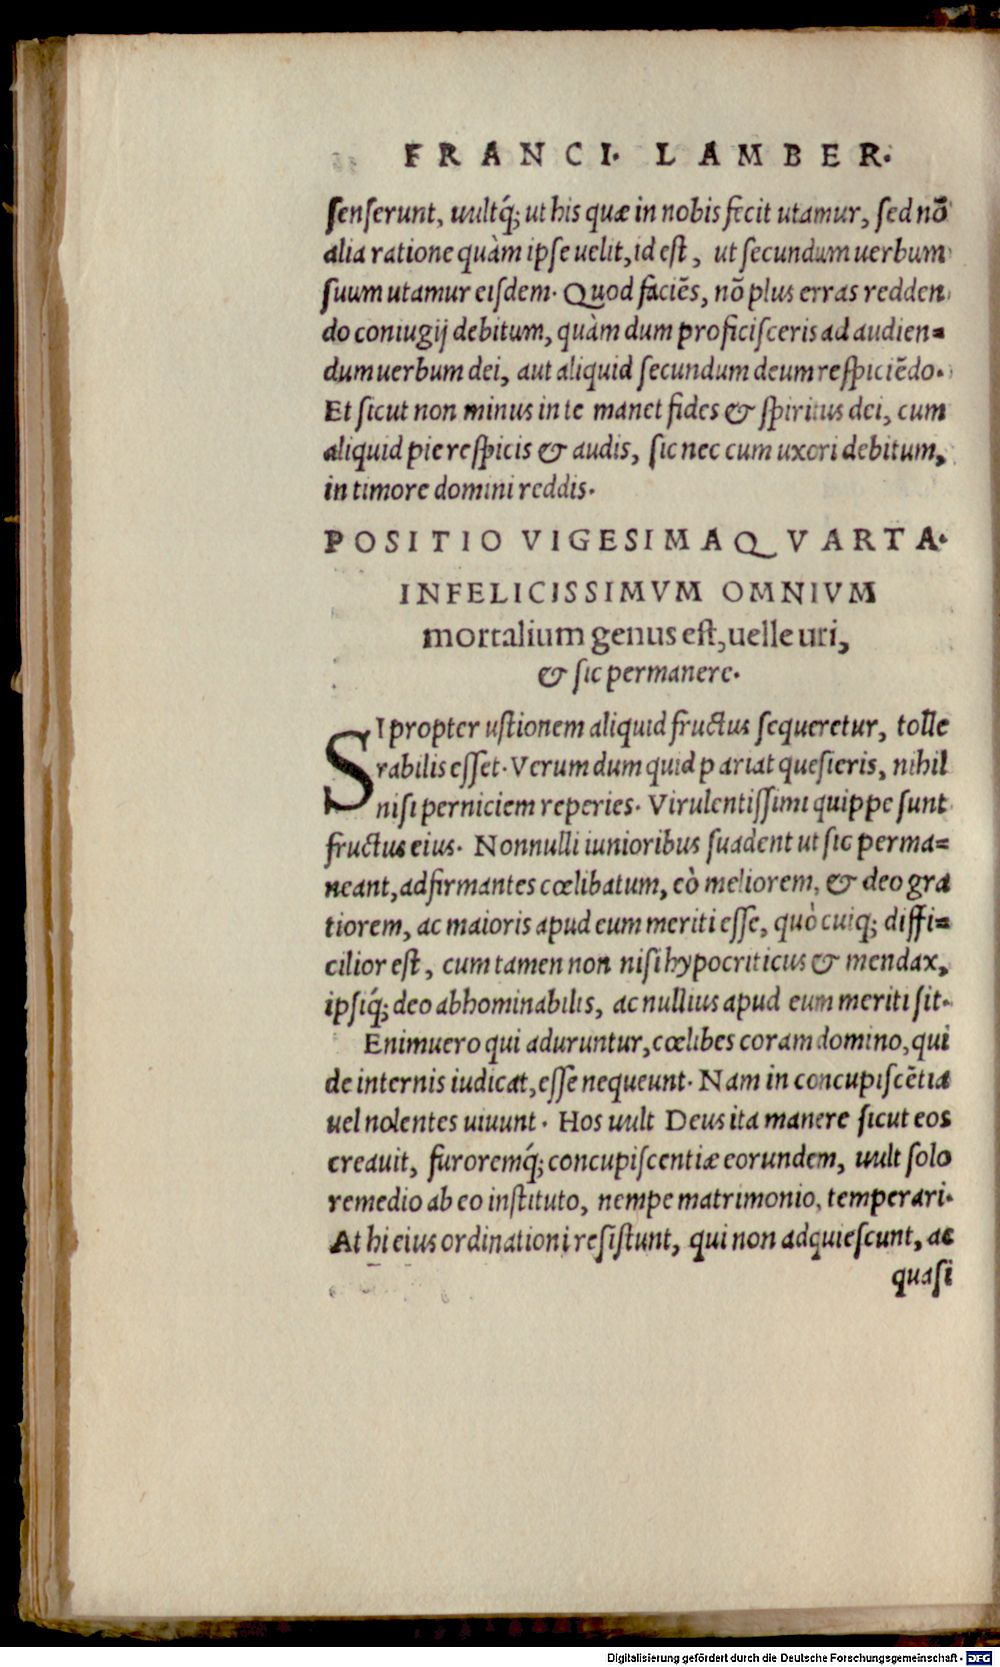 FRANCI. LAMBER.
senserunt, uultq́; ut his quæ in nobis fecit utamur, sed nō
alia ratione quàm ipse uelit, id est, ut secundum uerbum
suum utamur eisdem. Quod faciēs, nō plus erras redden
do coniugij debitum, quàm dum proficisceris ad audien=
dum uerbum dei, aut aliquid secundum deum respiciēdo.
Et sicut non minus in te manet fides & spiritus dei, cum
aliquid pie respicis & audis, sic nec cum uxori debitum,
in timore domini reddis.
POSITIO VIGESIMAQVARTA.
INFELICISSIMVM OMNIVM
mortalium genus est, uelle uri,
& sic permanere.
SI propter ustionem aliquid fructus sequeretur, tolle
rabilis esset. Verum dum quid pariat quesieris, nihil
nisi perniciem reperies. Virulentissimi quippe sunt
fructus eius. Nonnulli iunioribus suadent ut sic perma=
neant, adfirmantes cœlibatum, eò meliorem, & deo gra
tiorem, ac maioris apud eum meriti esse, quò cuiq; diffi=
cilior est, cum tamen non nisi hypocriticus & mendax,
ipsiq́; deo abhominabilis, ac nullius apud eum meriti sit.
Enimuero qui aduruntur, cœlibes coram domino, qui
de internis iudicat, esse nequeunt. Nam in concupiscētia
uel nolentes uiuunt. Hos uult Deus ita manere sicut eos
creauit, furoremq́; concupiscentiæ eorundem, uult solo
remedio ab eo instituto, nempe matrimonio, temperari.
At hi eius ordinationi resistunt, qui non adquiescunt, ac
quasi
Digitalisierung gefördert durch die Deutsche Forschungsgemeinschaft - DFG